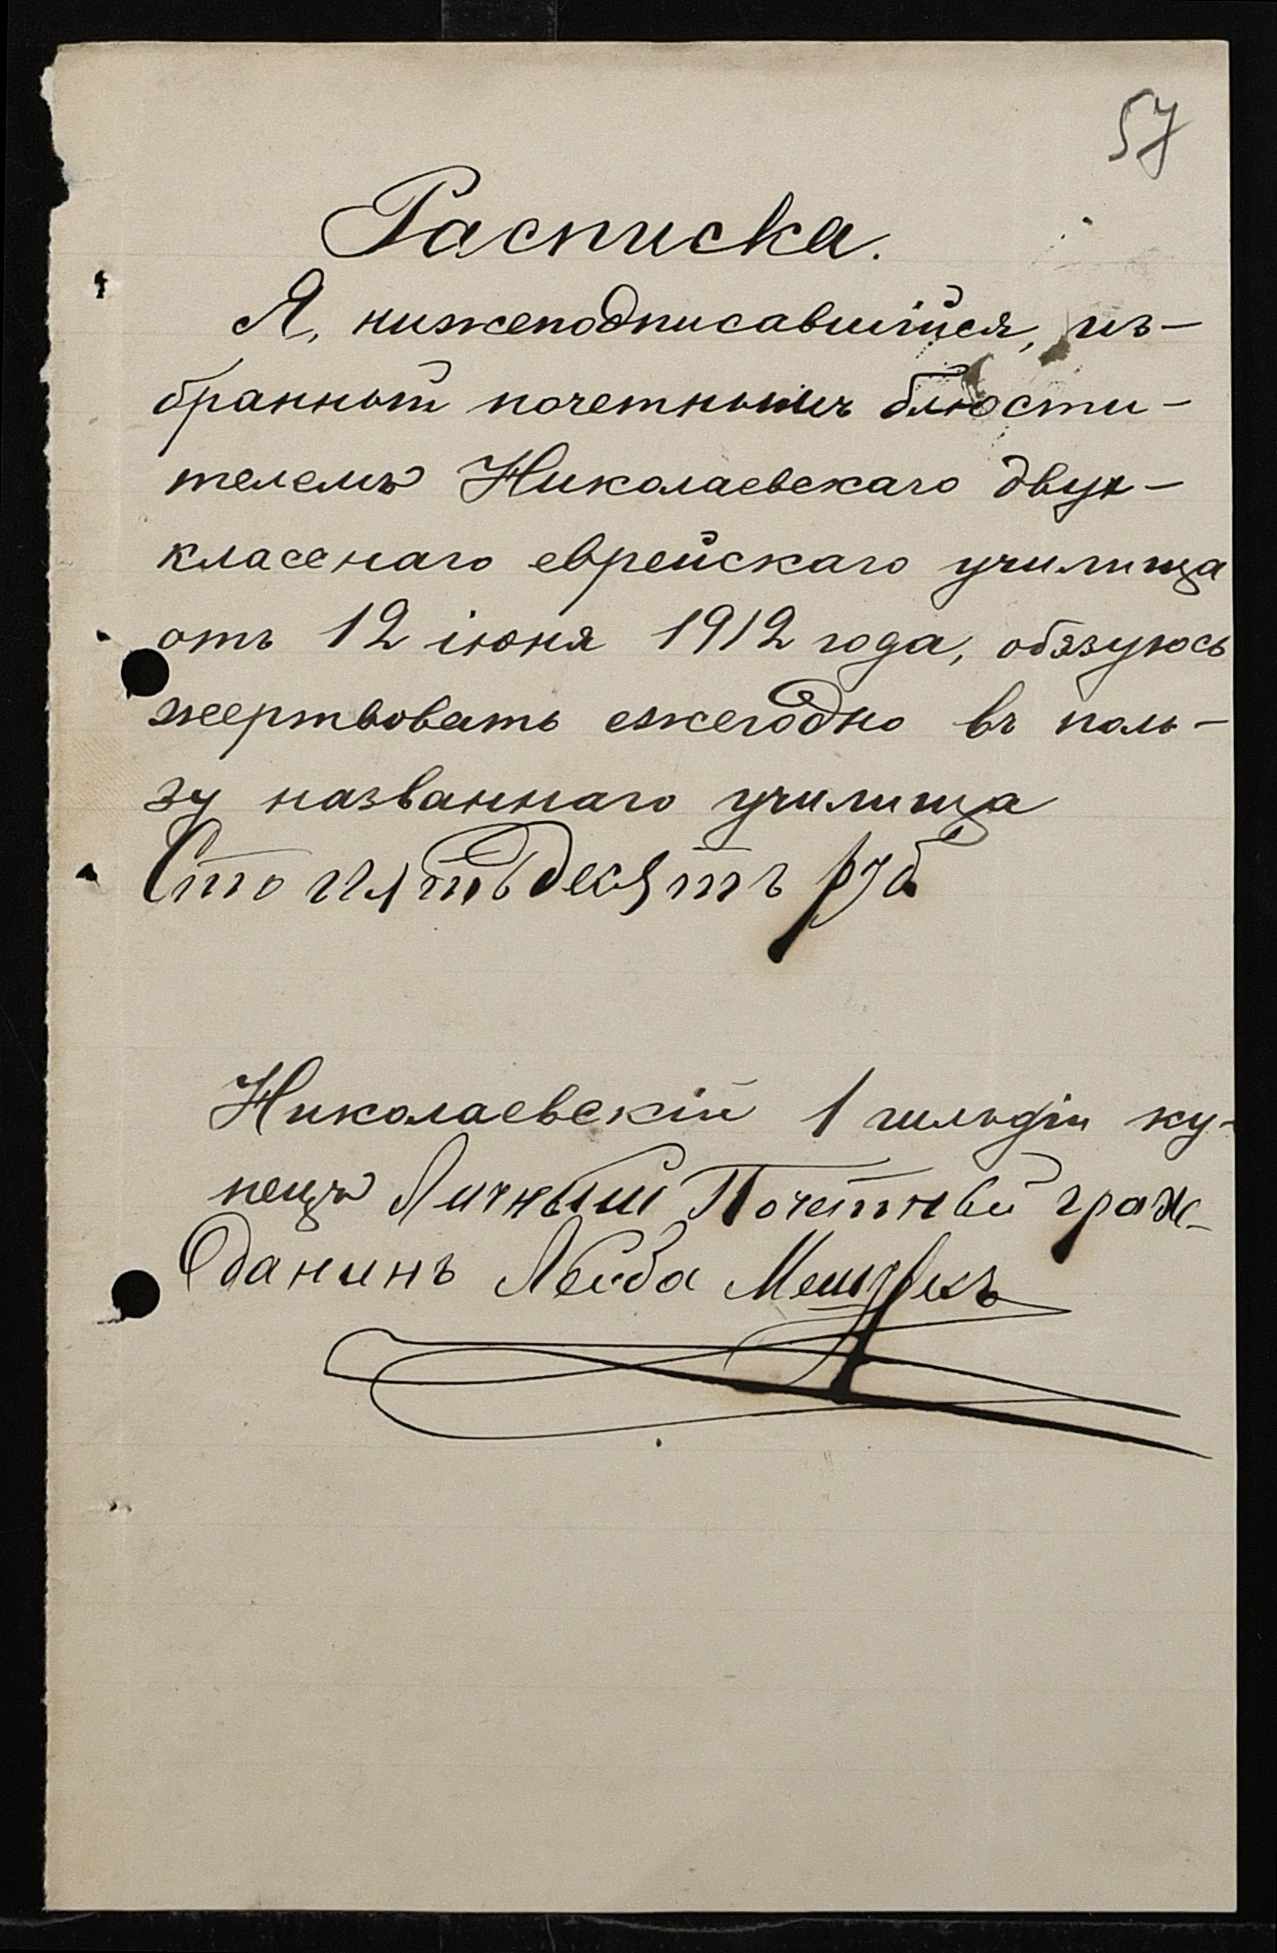 57
Расписка.
Я, нижеподписавшійся, из-
бранный почетнымъ блюсти-
телемъ Николаевскаго двух-
класснаго еврейскаго училища
отъ 12 іюня 1912 года, обязуюсь
жертвовать ежегодно въ поль-
зу названнаго училища
Сто пятьдесятъ руб
Николаевскій 1 гильдіи ку-
пецъ Личный Почетный граж-
данинъ Лейба